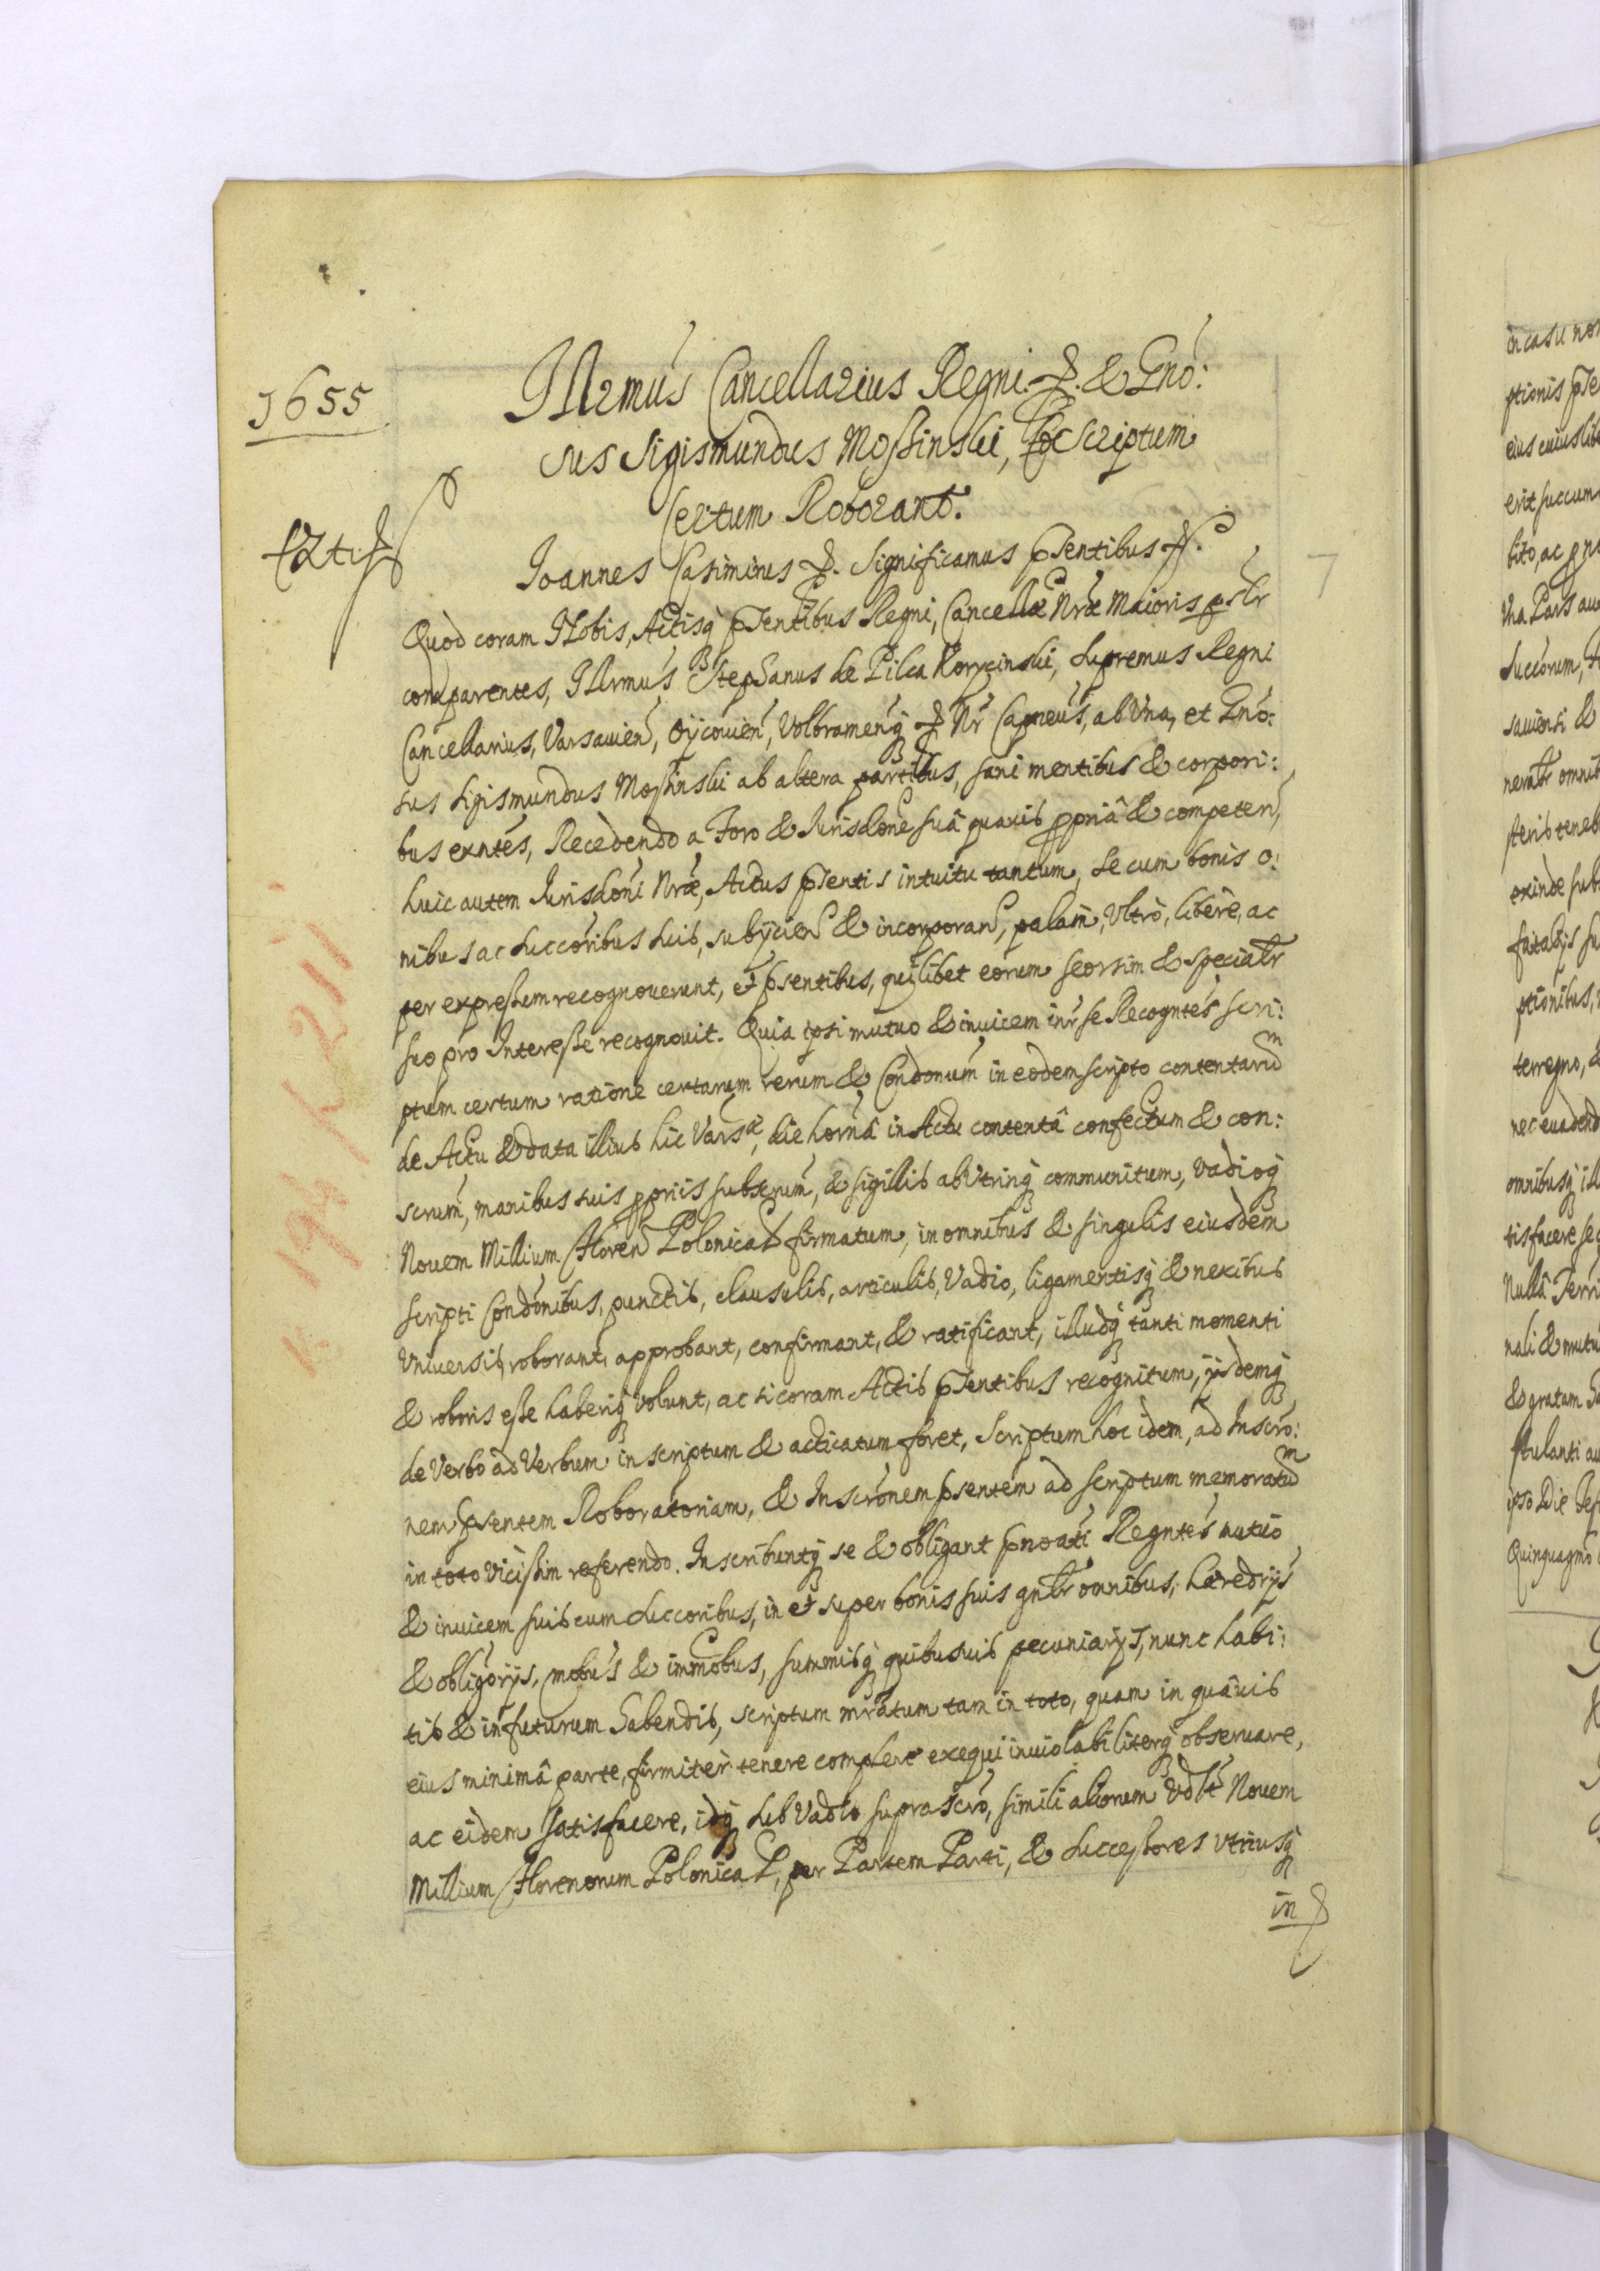 1655
Illrmus Cancellarius Regni &. & Gno:
sus Sigismundus Mossinski, Hoc scriptum
Certum Roborant.
Joannes Casimirus &. Significamus psentibus
Quod coram Nobis, Actisq psentibus Regni, Cancellæ Nræ Maioris pslr
comparentes, Illrmus Stephanus de Pilca Korycinski, Supremus Regni
Cancellarius, Varsavien, Oÿcovien, Volbramenq & Nr Capneus, ab Vna, et Gno:
sus Sigismundus Mossinski ab altera partibus, sani mentibus & corpori:
bus exntes, Recedendo a Foro & Jurisdone suâ quavis ppriâ & competen,
huic autem Jurisdoni Nræ, Actus psentis intuitu tantum, se cum bonis o:
nibus ac Succoribus suis, subÿcien & incorporan, palam, Vltrò, liberè, ac
per expressum recognoverunt, et psentibus, quilibet eorum seorsim & specialr
suo pro Interesse recognovit. Quia ipsi mutuo & invicem intr se Recogntes scri:
ptum certum ratione certarum rerum & Condonum in eodem scripto contentarum
de Actu & data illius hic Varsæ, die hornâ in Actu contentâ confectum & con:
scrum, manibus suis pprijs subscrum, & sigillis ab Vtrinq communitum, Vadioq
Novem Millium Floren Polonical firmatum, in omnibus & singulis eiusdem
scripti Condonibus, punctis, clausulis, articulis, Vadio, ligamentisq & nexibus
Vniversis, roborant, approbant, confirmant, & ratificant, illudq tanti momenti
& roboris esse haberiq volunt, ac si coram Actis psentibus recognitum, ÿsdemq
de Verbo ad Verbum inscriptum & acticatum foret, Scriptum hoc idem, ad Inscro:
nem psentem Roboratoriam, & Inscronem psentem ad scriptum memoratum
in toto vicissim referendo. Inscribuntq se & obligant pnoati Regntes mutuo
& invicem suis cum Succoribus, in et super bonis suis gnlr omnibus, hæredrÿs
& obligorÿs, mobus & immobus, summisq quibusvis pecuniarÿs, nunc habi:
tis & in futurum habendis, scriptum mratum tam in toto, quam in quâvis
eius minimâ parte, firmiter tenere complere exequi inviolabiliterq observare,
ac eidem satisfacere, idq sub Vadio suprascro, simili aliorum Vdlt Novem
Millium Florenorum Polonical, per Partem Parti, & Successores Vtriusq
in
7
in casu non
ptionis pse
eius cuiuslib
erit succum
Vna Pars au
Succorum,
saviensi &
omnib
exinde sub
ptionibus,
terregno, &
nec evadend
omnibusq ill
tisfacere se
Nullâ Terri
nali & mutu
& gratam
stulanti au
ipso Die
Quinquagmo